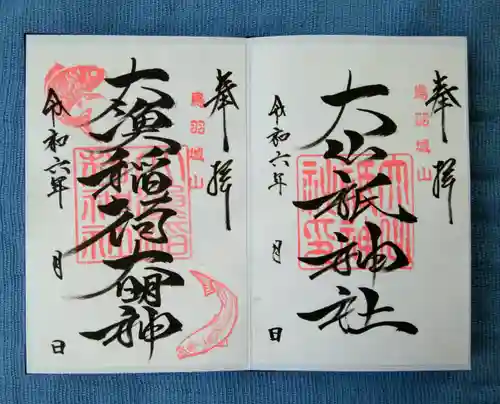 奉拝
鳥羽城山
大山祇神社
令和六年 月 日
奉拝
鳥羽城山
大漁稲荷大明神
令和六年 月 日